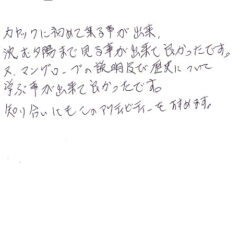 カヤックに初めて乗る事が出来、
沈む夕陽まで見る事が出来て良かったです。
又、マングローブの説明及び歴史について
学ぶ事が出来て良かったです。
知り合いにもこのアクティビティーを勧めます。